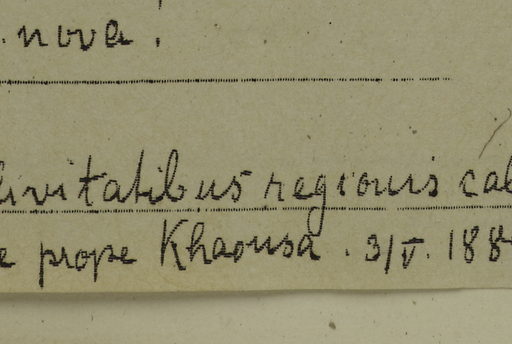 . nova.
livitatibus regionis cal
e prope Khaousa . 3/V. 188